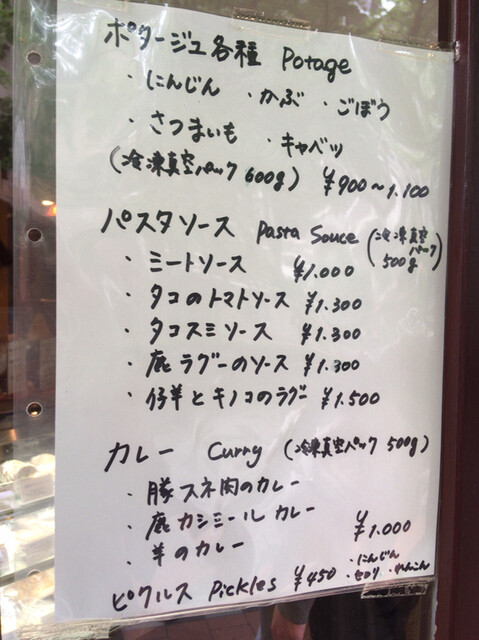 ポタージュ各種 Potage
・にんじん ・かぶ ・ごぼう
・さつまいも ・キャベツ
(冷凍真空パック 600g) ¥900~1.100
パスタソース Pasta Souce (冷凍真空パック 500g)
・ミートソース ¥1.000
・タコのトマトソース ¥1.300
・タコスミソース ¥1.300
・鹿ラグーのソース ¥1.300
・仔羊とキノコのラグー ¥1.500
カレー Curry (冷凍真空パック 500g)
・豚スネ肉のカレー
・鹿カシミールカレー
・羊のカレー ¥1.000
ピクルス Pickles ¥450 ・にんじん ・セロリ ・れんこん